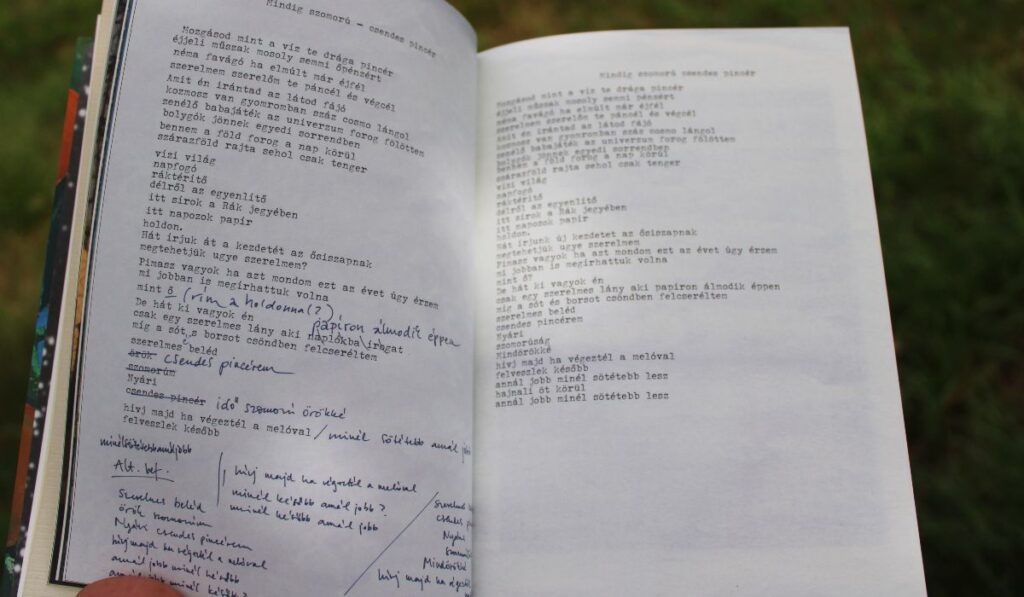 Mindig szomorú – csendes pincér
Mozgásod mint a víz te drága pincér
éjjeli műszak mosoly semmi őpénzért
néma favágó ha elmúlt már éjfél
szerelmem szerelőm te páncél és végcél
Amit én irántad az látod fájó
kozmosz van gyomromban száz cosmo lángol
zenélő babajáték az univerzum forog fölöttem
bolygók jönnek egyedi sorrendben
bennem a föld forog a nap körül
szárazföld rajta sehol csak tenger
vízi világ
napfogó
ráktérítő
délről az egyenlítő
itt sírok a Rák jegyében
itt napozok papír
holdon.
Hát írjuk át a kezdetét az ősiszapnak
megtehetjük ugye szerelmem?
Pimasz vagyok ha azt mondom ezt az évet úgy érzem
mi jobban is megírhattuk volna
mint ő (rím a holdonna(?)
De hát ki vagyok én papíron álmodik éppen
csak egy szerelmes lány aki naplókba irogat
míg a sót, s borsot csöndben felcseréltem
szerelmes beléd
örök csendes pincérem
szomorúm
Nyári
csendes pincér idő szomorú örökké
hívj majd ha végeztél a melóval / minél sötétebb annál jobb
felveszlek később
minélsötétebbannáljobb
Alt. bef.
hívj majd ha végeztél a melóval
minél később annál jobb?
minél később annál jobb
Szerelmes beléd
örök szomorúm
Nyári csendes pincérem
hívj majd ha végeztél a melóval
annál jobb minél később
annál jobb minél később?
Szerelmes
csendes
Nyári
Mindörökké
hívj majd ha végeztél
Mindig szomorú csendes pincér
Mozgásod mint a víz te drága pincér
éjjeli műszak mosoly semmi pénzért
néma favágó ha elmúlt már éjfél
szerelmem szerelőm te páncél és végcél
Amit én irántad az látod fájó
kozmosz van gyomromban száz cosmo lángol
zenélő babajáték az univerzum forog fölöttem
bolygók jönnek egyedi sorrendben
bennem a föld forog a nap körül
szárazföld rajta sehol csak tenger
vízi világ
napfogó
ráktérítő
délről az egyenlítő
itt sírok a Rák jegyében
itt napozok papír
holdon.
Hát írjunk új kezdetet az ősiszapnak
megtehetjük ugye szerelmem
Pimasz vagyok ha azt mondom ezt az évet úgy érzem
mi jobban is megírhattuk volna
mint ő?
De hát ki vagyok én
csak egy szerelmes lány aki papíron álmodik éppen
míg a sót és borsot csöndben felcseréltem
szerelmes beléd
csendes pincérem
Nyári
szomorúság
Mindörökké
hívj majd ha végeztél a melóval
felveszlek később
annál jobb minél sötétebb lesz
hajnali öt körül
annál jobb minél sötétebb lesz